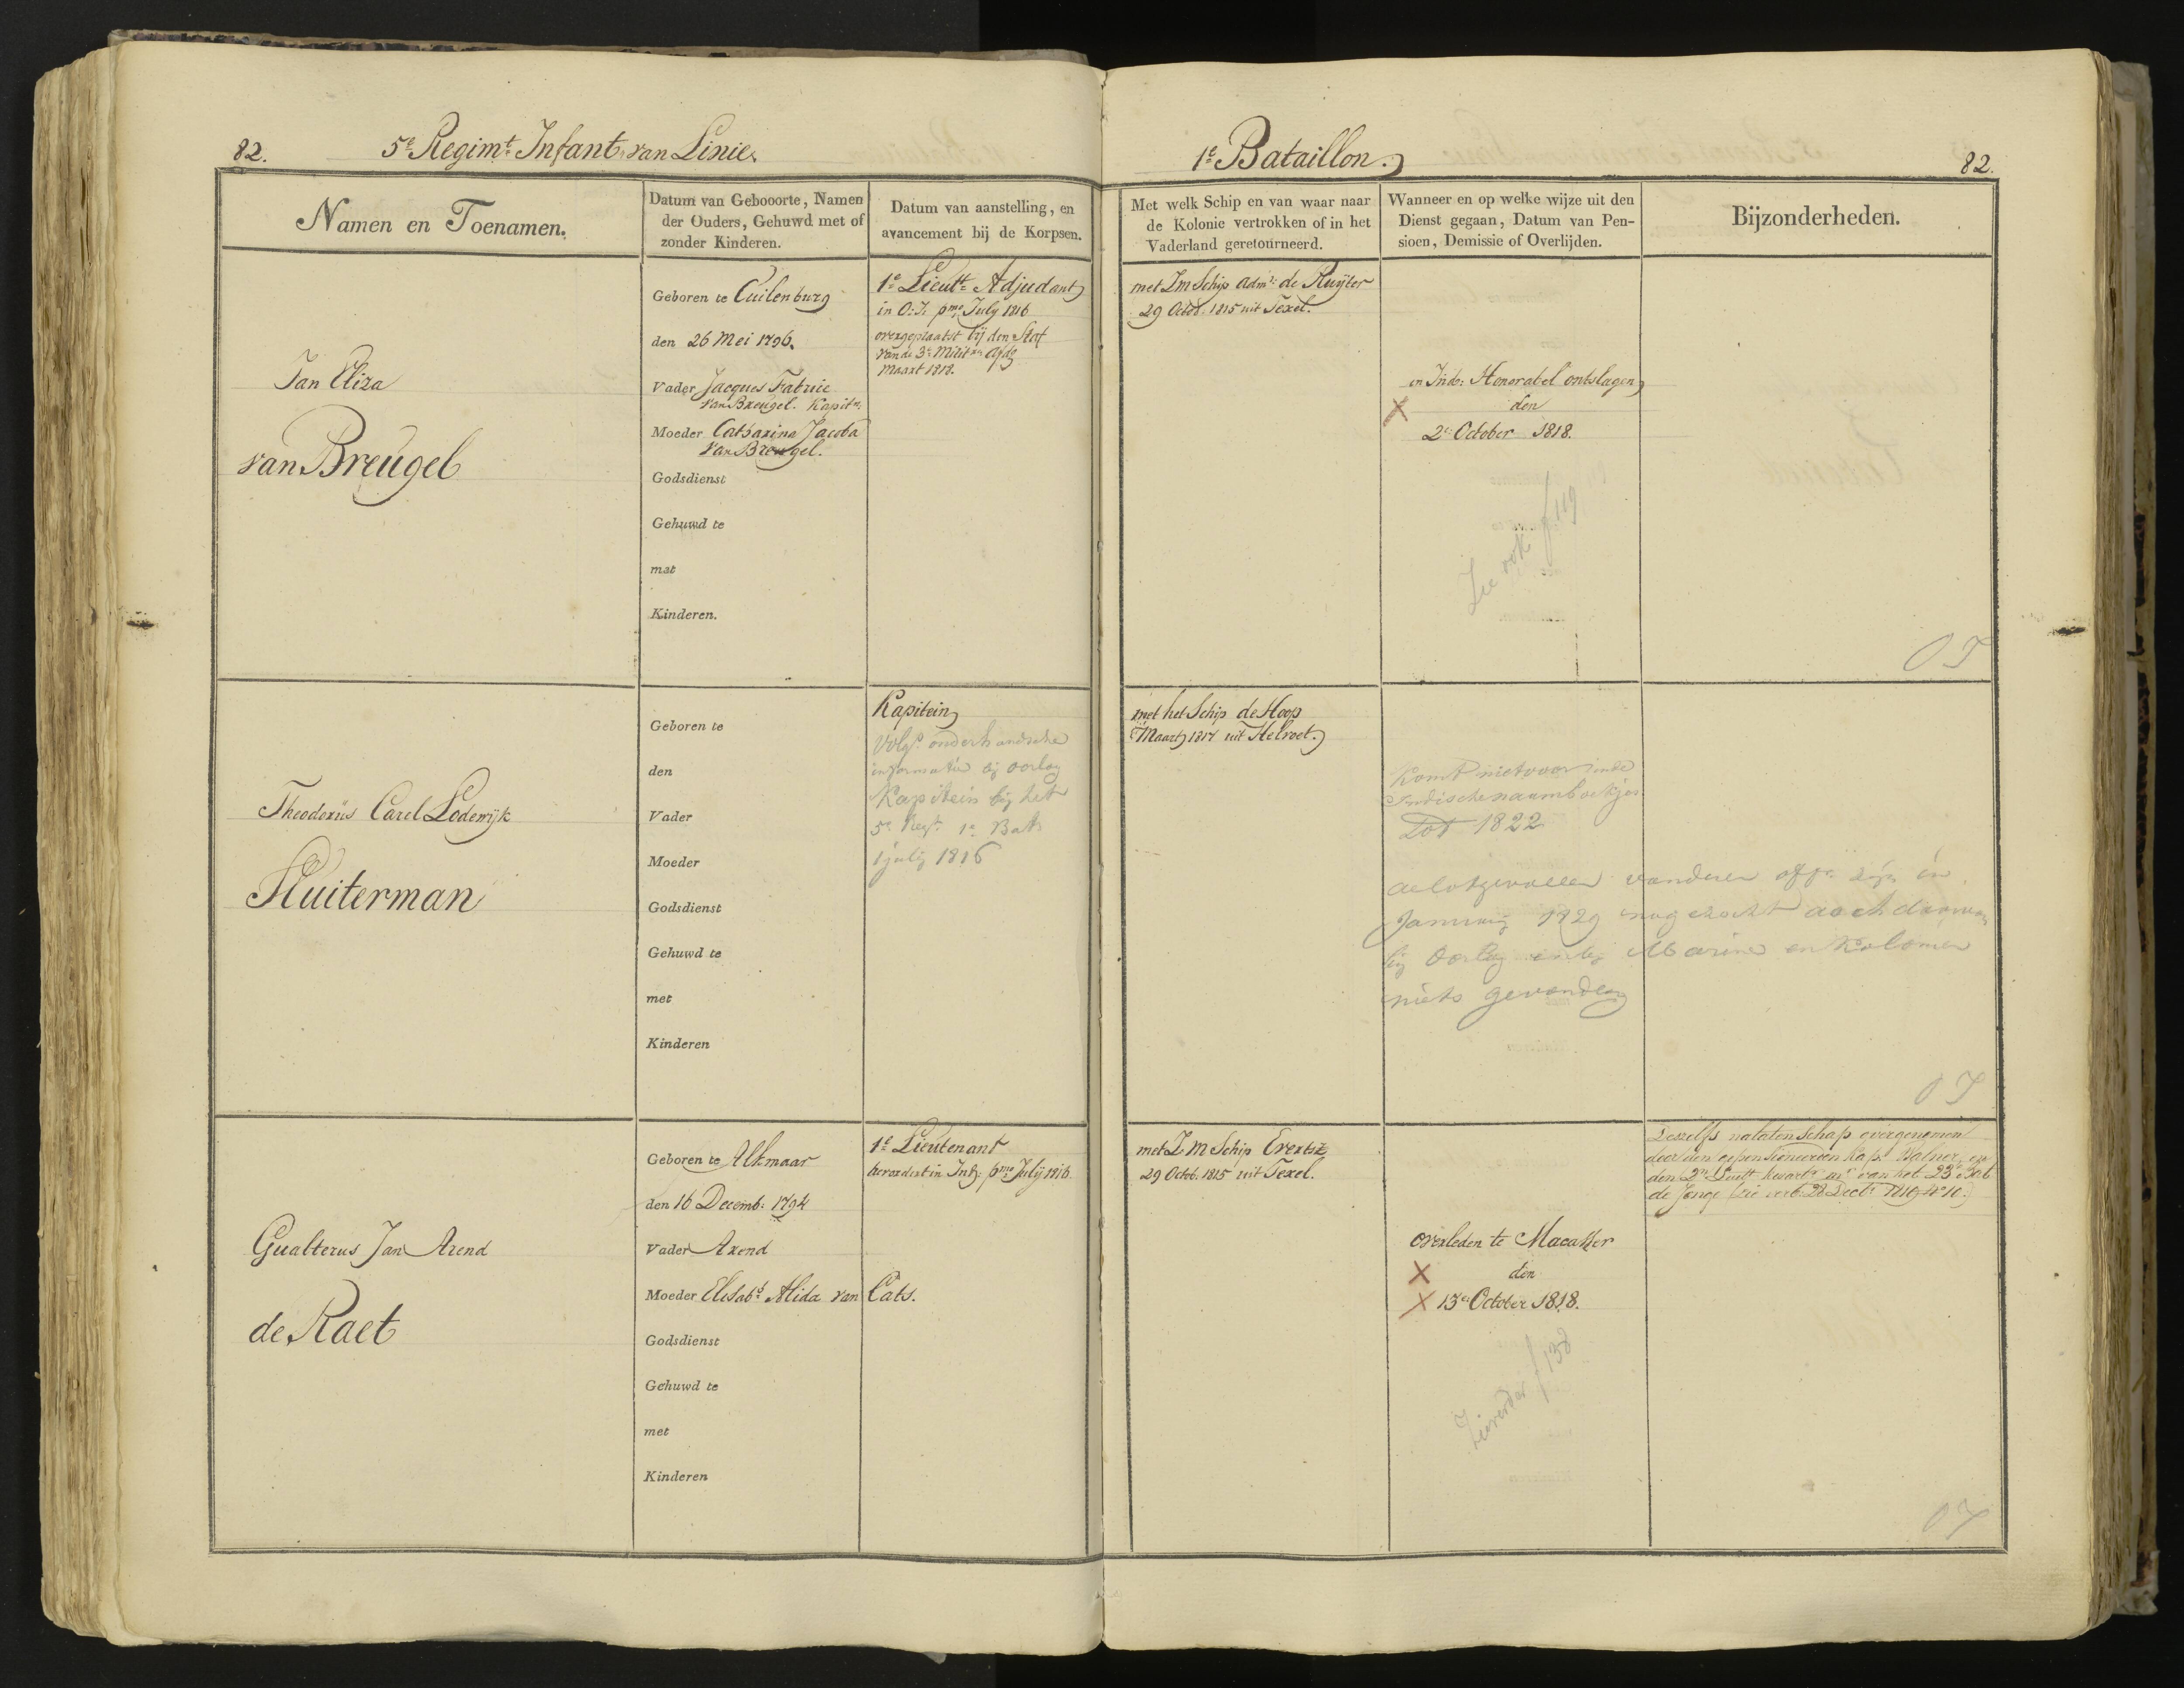 82.
5e Regimt Infant. van Linie.
1e Bataillon.
82.
Namen en Toenamen.
Datum van Gebooorte, Namen
der Ouders, Gehuwd met of
zonder Kinderen.
Datum van aanstelling, en
avancement bij de Korpsen.
Met welk Schip en van waar naar
de Kolonie vertrokken of in het
Vaderland geretourneerd.
Wanneer en op welke wijze uit den
Dienst gegaan, Datum van Pen-
sioen, Demissie of Overlijden.
Bijzonderheden.
Jan Eliza
van Breugel
Geboren te Cuilenburg
den 26 Mei 1796.
Vader Jacques Fabrice
van Breugel. Kapitn
Moeder Catharina Jacoba
van Breugel.
Godsdienst
Gehuwd te
met
Kinderen.
1e Lieutt Adjudant
in O:I: pmo July 1816
overgeplaatst bij den Staf
van de 3e Militre Afdg
Maart 1818.
met Zm Schip Adml: de Ruijter
29 Octob. 1815 uit Texel.
in Indn: Honorabel ontslagen
den
2e October 1818.
Zie ook f 119
OI
Theodorus Carel Lodewijk
Kluiterman
Geboren te
den
Vader
Moeder
Godsdienst
Gehuwd te
met
Kinderen
Kapitein
Volgs onderhandsche
informatie bij oorlog
Kapitein bij het
5e Regt. 1e Bat.
1 julij 1816
met het Schip de Hoop
Maart 1817 uit Helvoet.
Komt niet voor in de
Indische naamboekjes
tot 1822
de lotgevallen van dezen offr zijn in
January 1829 nagezocht doch daarvan
bij Oorlog en bij Marine en Kolonien
niets gevonden
OI
Gualterus Jan Arend
de Raet
Geboren te Alkmaar
den 16 Decemb: 1794
Vader Arend
Moeder Elisabt Alida van Cats.
Godsdienst
Gehuwd te
met
Kinderen
1e Lieutenant
bevorderd in Ind: pmo July 1816
met Z M Schip Evertsz
29 Octob. 1815 uit Texel.
overleden te Macasser
den
13e October 1818.
Zie verder f 138
Deszelfs nalatenschap overgenomen
door den gepensioneerden Kapt.
den 2n Luitt kwartr mr van het 23e Bat.
de Jonge
OI